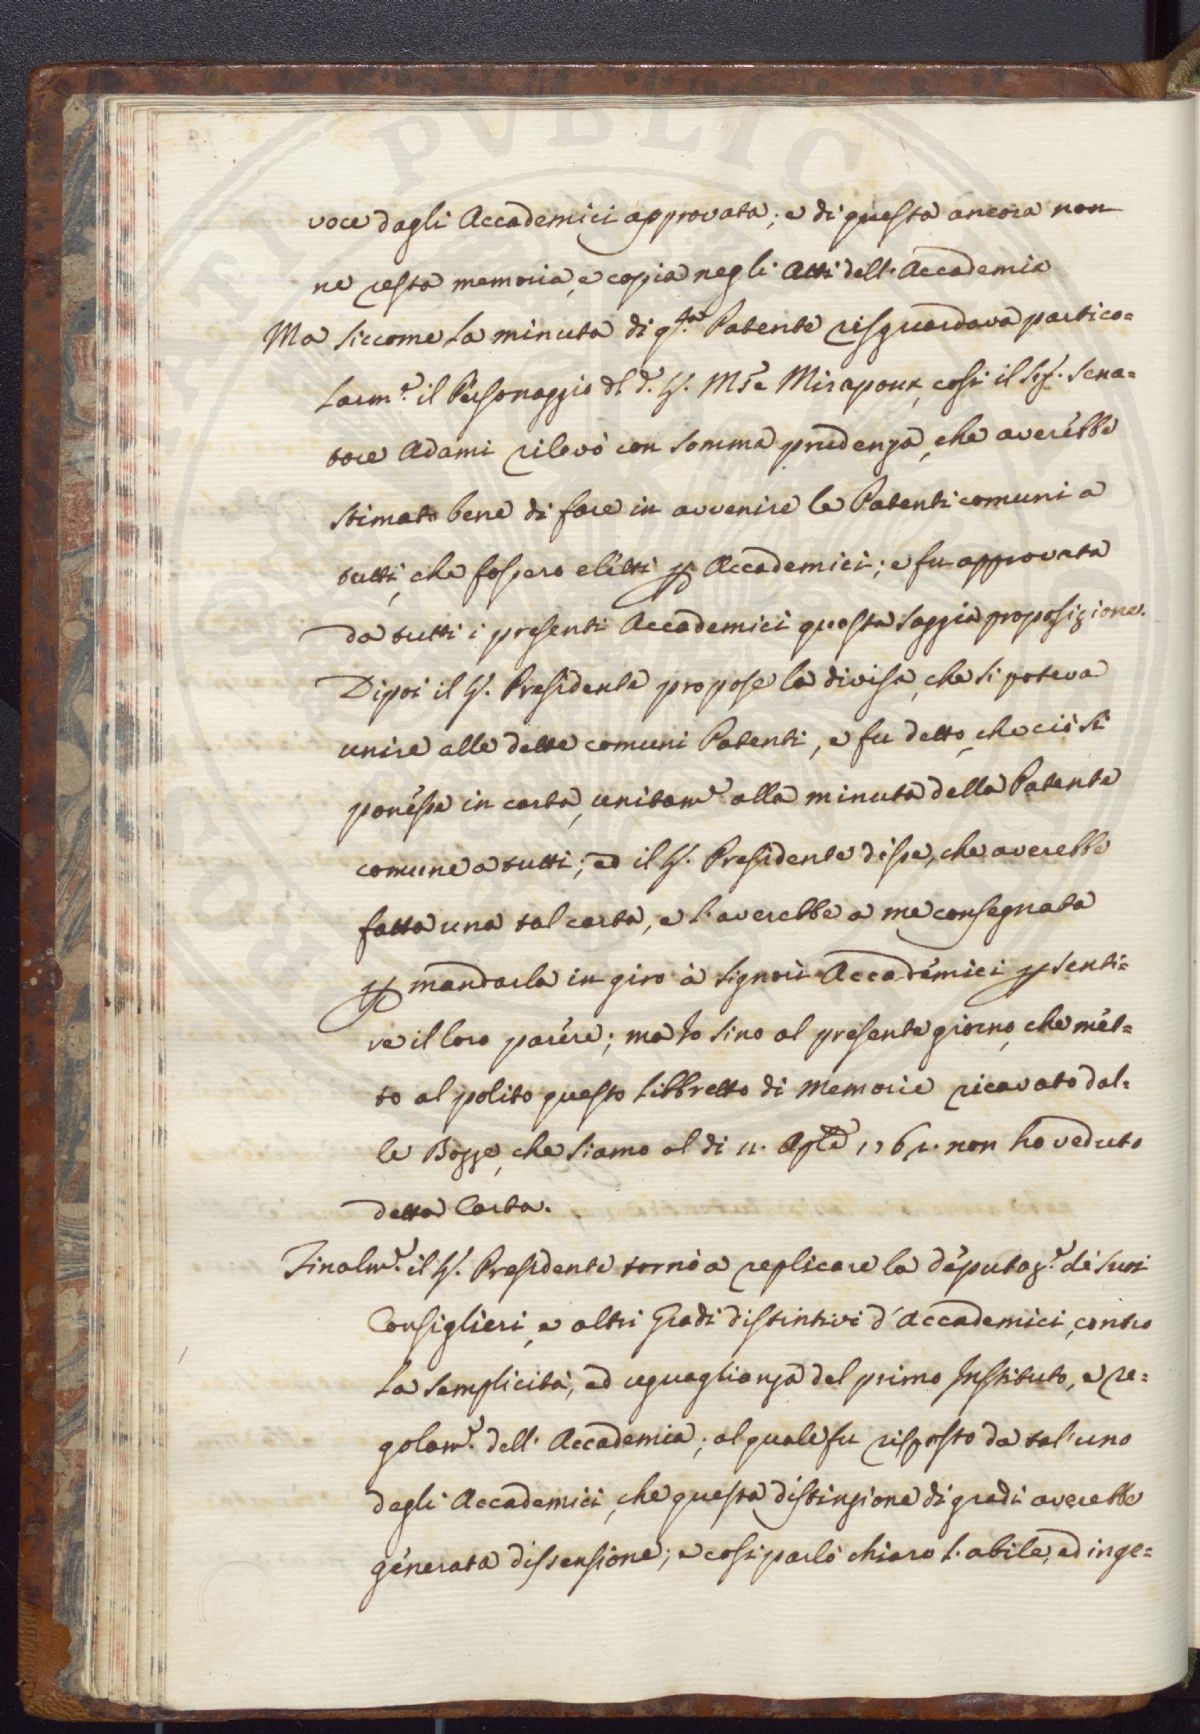 voce dagli Accademici approvata; e di questa ancora non
ne resta memoria, e copia negli Atti dell'Accademia
Ma siccome la minuta di q.sta Patente risguardava partico=
larm.e il Personaggio dl d.o S.r M.se Mirapoux, così il Sig.r Sena=
tore Adami rilevò con somma prudenza, che averebbe
stimato bene di fare in avvenire le Patenti comuni a
tutti, che fossero eletti p Accademici; e fu approvata
da tutti i presenti Accademici questa saggia proposizione.
Dipoi il S.r Presidente propose la divisa, che si poteva
unire alle dette comuni Patenti, e fu detto, che ciò si
ponesse in carta, unitam.e alla minuta della Patente
comune a tutti; ed il S.r Presidente disse, che averebbe
fatta una tal carta, e l'averebbe a me consegnata
p mandarla in giro à Signori Accademici p senti=
re il loro parere; ma Io sino al presente giorno, che met=
to al polito questo libbretto di Memorie ricavato dal=
le Bozze, che siamo al di 11. Ap.le 1761. non ho veduto
detta Carta.
Finalm.e il S.r Presidente tornò a replicare la deputaz.e de suoi
Consiglieri, e altri Gradi distintivi d'Accademici, contro
la semplicità, ed uguaglianza del primo Instituto, e re=
golam.o dell'Accademia; al quale fu risposto da tal'uno
degli Accademici, che questa distinzione di gradi averebbe
generata dissensione; e così parlò chiaro l'abile, ed inge=